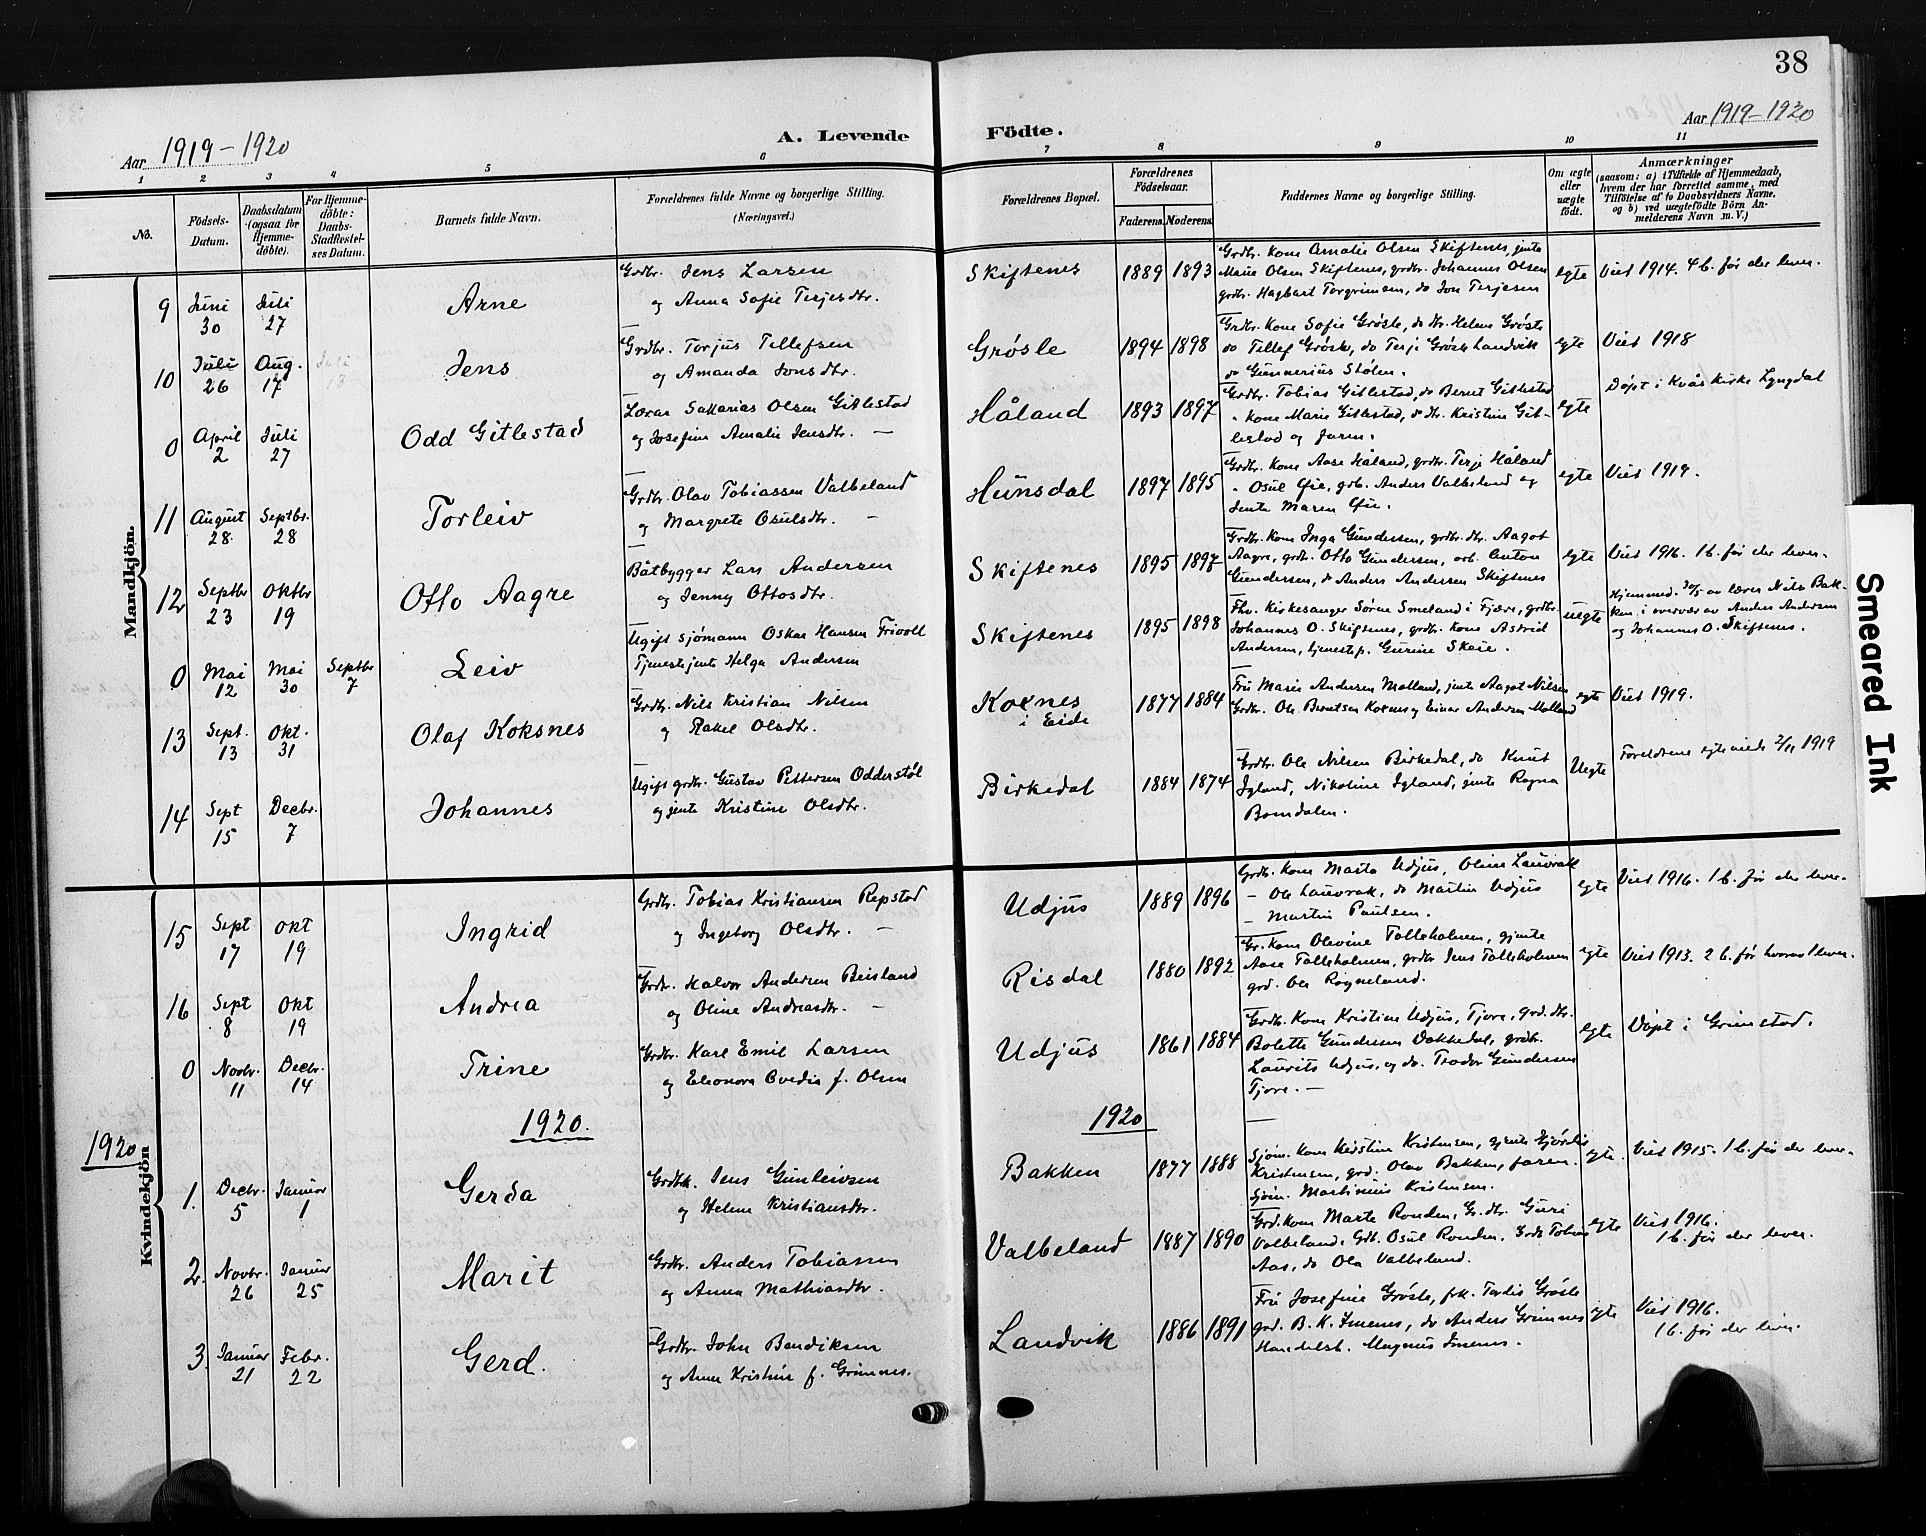 38
Aar 1919-1920
A. Levende Födte.
Aar 1919-1920
1 2 3 4 5 6 7 8 9 10 11
No.
Födsels-Datum.
Daabsdatum (ogsaa for Hjemme-döbte).
For Hjemme-döbte: Daabs-Stadfæstel-ses Datum.
Barnets fulde Navn.
Forældrenes fulde Navne og borgerlige Stilling.
(Næringsvei.)
Forældrenes Bopæl.
Forældrenes Födselsaar.
Faderens. Moderens.
Faddernes Navne og borgerlige Stilling.
Om ægte eller uægte födt.
Anmærkninger
(saasom: a) i Tilfælde af Hjemmedaab, hvem der har forrettet samme, med Tilföielse af to Daabsvidners Navne, og b) ved uægtefödte Börn An-melderens Navn m. V.)
Mandkjön.
9 Juni 30 Juli 27 Arne
Grdbr. Jens Larsen
og Anna Sofie Terjesdtr.
Skiftenes 1889 1893
Grdbr. Kone Amalie Olsen Skiftenes, jente
Marie Olsen Skiftenes, grdbr. Johannes Olsen
grdbr. Hagbart Torgrimsen, do Jon Terjesen
egte Viet 1914. 4 b. før der lever.
10 Juli 26 Aug. 17 Juli 13 Jens
Grdbr. Torjus Tellefsen
og Amanda Jonsdtr.
Grøsle 1894 1898
Grdbr. Kone Sofie Grøsle, do dtr. Helene Grøsle
do Tellef Grøsle, do Terje Grøsle Landvik
do Gunnerius Stølen.
egte Viet 1918
0 April 2 Juli 27 Odd Gitlestad
Lærer Sakkarias Olsen Gitlestad
og Josefine Amalie Jensdtr. —
Håland 1893 1897
Grdbr. Tobias Gitlestad, do Bernt Gitlestad
" kone Marie Gitlestad, do dtr. Kristine Git-
lestad og faren.
egte Døpt i Kvås Kirke Lyngdal
11 August 28 Septbr. 28 Torleiv
Grdbr. Olav Tobiassen Valbeland
og Margrete Osulsdtr. —
Hunsdal 1897 1895
Grdbr. Kone Aase Håland, grdbr. Terje Håland
" Osul Øie, grb. Anders Valbeland og
Jente Maren Øie.
egte Viet 1919.
12 Septbr 23 Oktbr 19 Otto Aagre
Båtbygger Lars Andersen
og Jenny Ottosdtr.
Skiftenes 1895 1897
Grdbr. Kone Inga Gundersen, grdbr. dtr. Aagot
Aagre, grdbr. Otto Gundersen, arb. Anton
Gundersen, do Anders Andersen Skiftenes
egte Viet 1916. 1 b. før der lever.
0 Mai 12 Mai 30 Septbr 7 Leiv
Ugift sjømann Oskar Hansen Frivoll
Tjenestejente Helga Andersen
Skiftenes 1895 1898
Fhv. Kirkesanger Søren Smeland i Fjære, grdbr.
Johannes O. Skiftenes, grdbr. kone Astrid
Andersen, tjenestep. Gurine Skeie.
uegte Hjemmed. 30/5 av lærer Nils Bak-
ken i overvær av Anders Andersen
og Johannes O. Skiftenes.
13 Sept. 13 Okt. 31 Olaf Koksnes
Grdbr. Nils Kristian Nilsen
og Rakel Olsdtr.
Koxnes i Eide 1877 1884
Fru Marie Andersen Molland, jente Aagot Nilsen
Grdbr. Ole Berntsen Koxnes og Einar Andersen Molland
egte Viet 1919.
14 Sept 15 Decbr. 7 Johannes
Ugift grdbr. Gustav Pettersen Odderstøl
og jente Kristine Olsdtr.
Birkedal 1884 1874
Grdbr. Ole Nilsen Birkedal, do Knut
Igland, Nikoline Igland, jente Ragna
Bomdalen.
Uegte Foreldrene egteviede 2/11 1919
15 Sept 17 Okt 19 Ingrid
Grdbr. Tobias Kristiansen Repstad
og Ingeborg Olsdtr. —
Udjus 1889 1896
Grdb. Kone Marta Udjus, Oline Lauvrak
— Ole Lauvrak, do Martin Udjus
— Martin Paulsen.
egte Viet 1916. 1 b. før der lever.
16 Sept 8 Okt 19 Andrea
Grdbr. Halvor Andersen Beisland
og Oline Andreasdtr. —
Risdal 1880 1892
Gr. Kone Olevine Tolleholmen, gjente
Aase Tolleholmen, grdbr Jens Tolleholmen
grd. Ole Rogneland.
egte Viet 1913. 2 b. før hvorav 1 lever.
0 Novbr. 11 Decbr. 14 Trine
Grdbr. Karl Emil Larsen
og Eleonora Ovedia f. Olsen
Udjus 1861 1884
Grdb. Kone Kristine Udjus, Tjore, grd. dtr.
Bolette Gundersen Dokkedal, grdbr.
Laurits Udjus, og do. Trodor Gundersen
Tjore. —
egte Døpt i Grimstad.
1920. 1920
1920
Kvindekjön
1. Decbr. 5 Januar 1 Gerda
Grdbk. Jens Gunleivsen
og Helene Kristiansdtr.
Bakken 1877 1888
Sjøm. Kone Kerstine Kristensen, gjente Hjørdis
Kristensen, grd. Olav Bakken, faren.
Sjøm. Martinius Kristensen.
egte. Viet 1915. 1 b. før der lever.
2. Novbr. 26 Januar 25 Marit
Grdbr. Anders Tobiassen
og Anna Mathiasdtr.
Valbeland 1887 1890
Grd. kone Marte Ronden, Gr. dtr. Guri
Valbeland, Gdb. Osul Ronden, Grdb Tobias
Aas, do Ola Valbeland.
egte Viet 1916.
1 b. før der lever.
3 Januar 21 Febr. 22 Gerd.
Grdbr. John Bendiksen
og Anne Kristine f. Grimnes.
Landvik 1886 1891
Fru Josefine Grøsle, frk. Tordis Grøsle
grd. B. K. Imenes, do Anders Grimnes
Handelsb. Magnus Imenes.
egte Viet 1916.
1 b. før der lever.
Smeared Ink